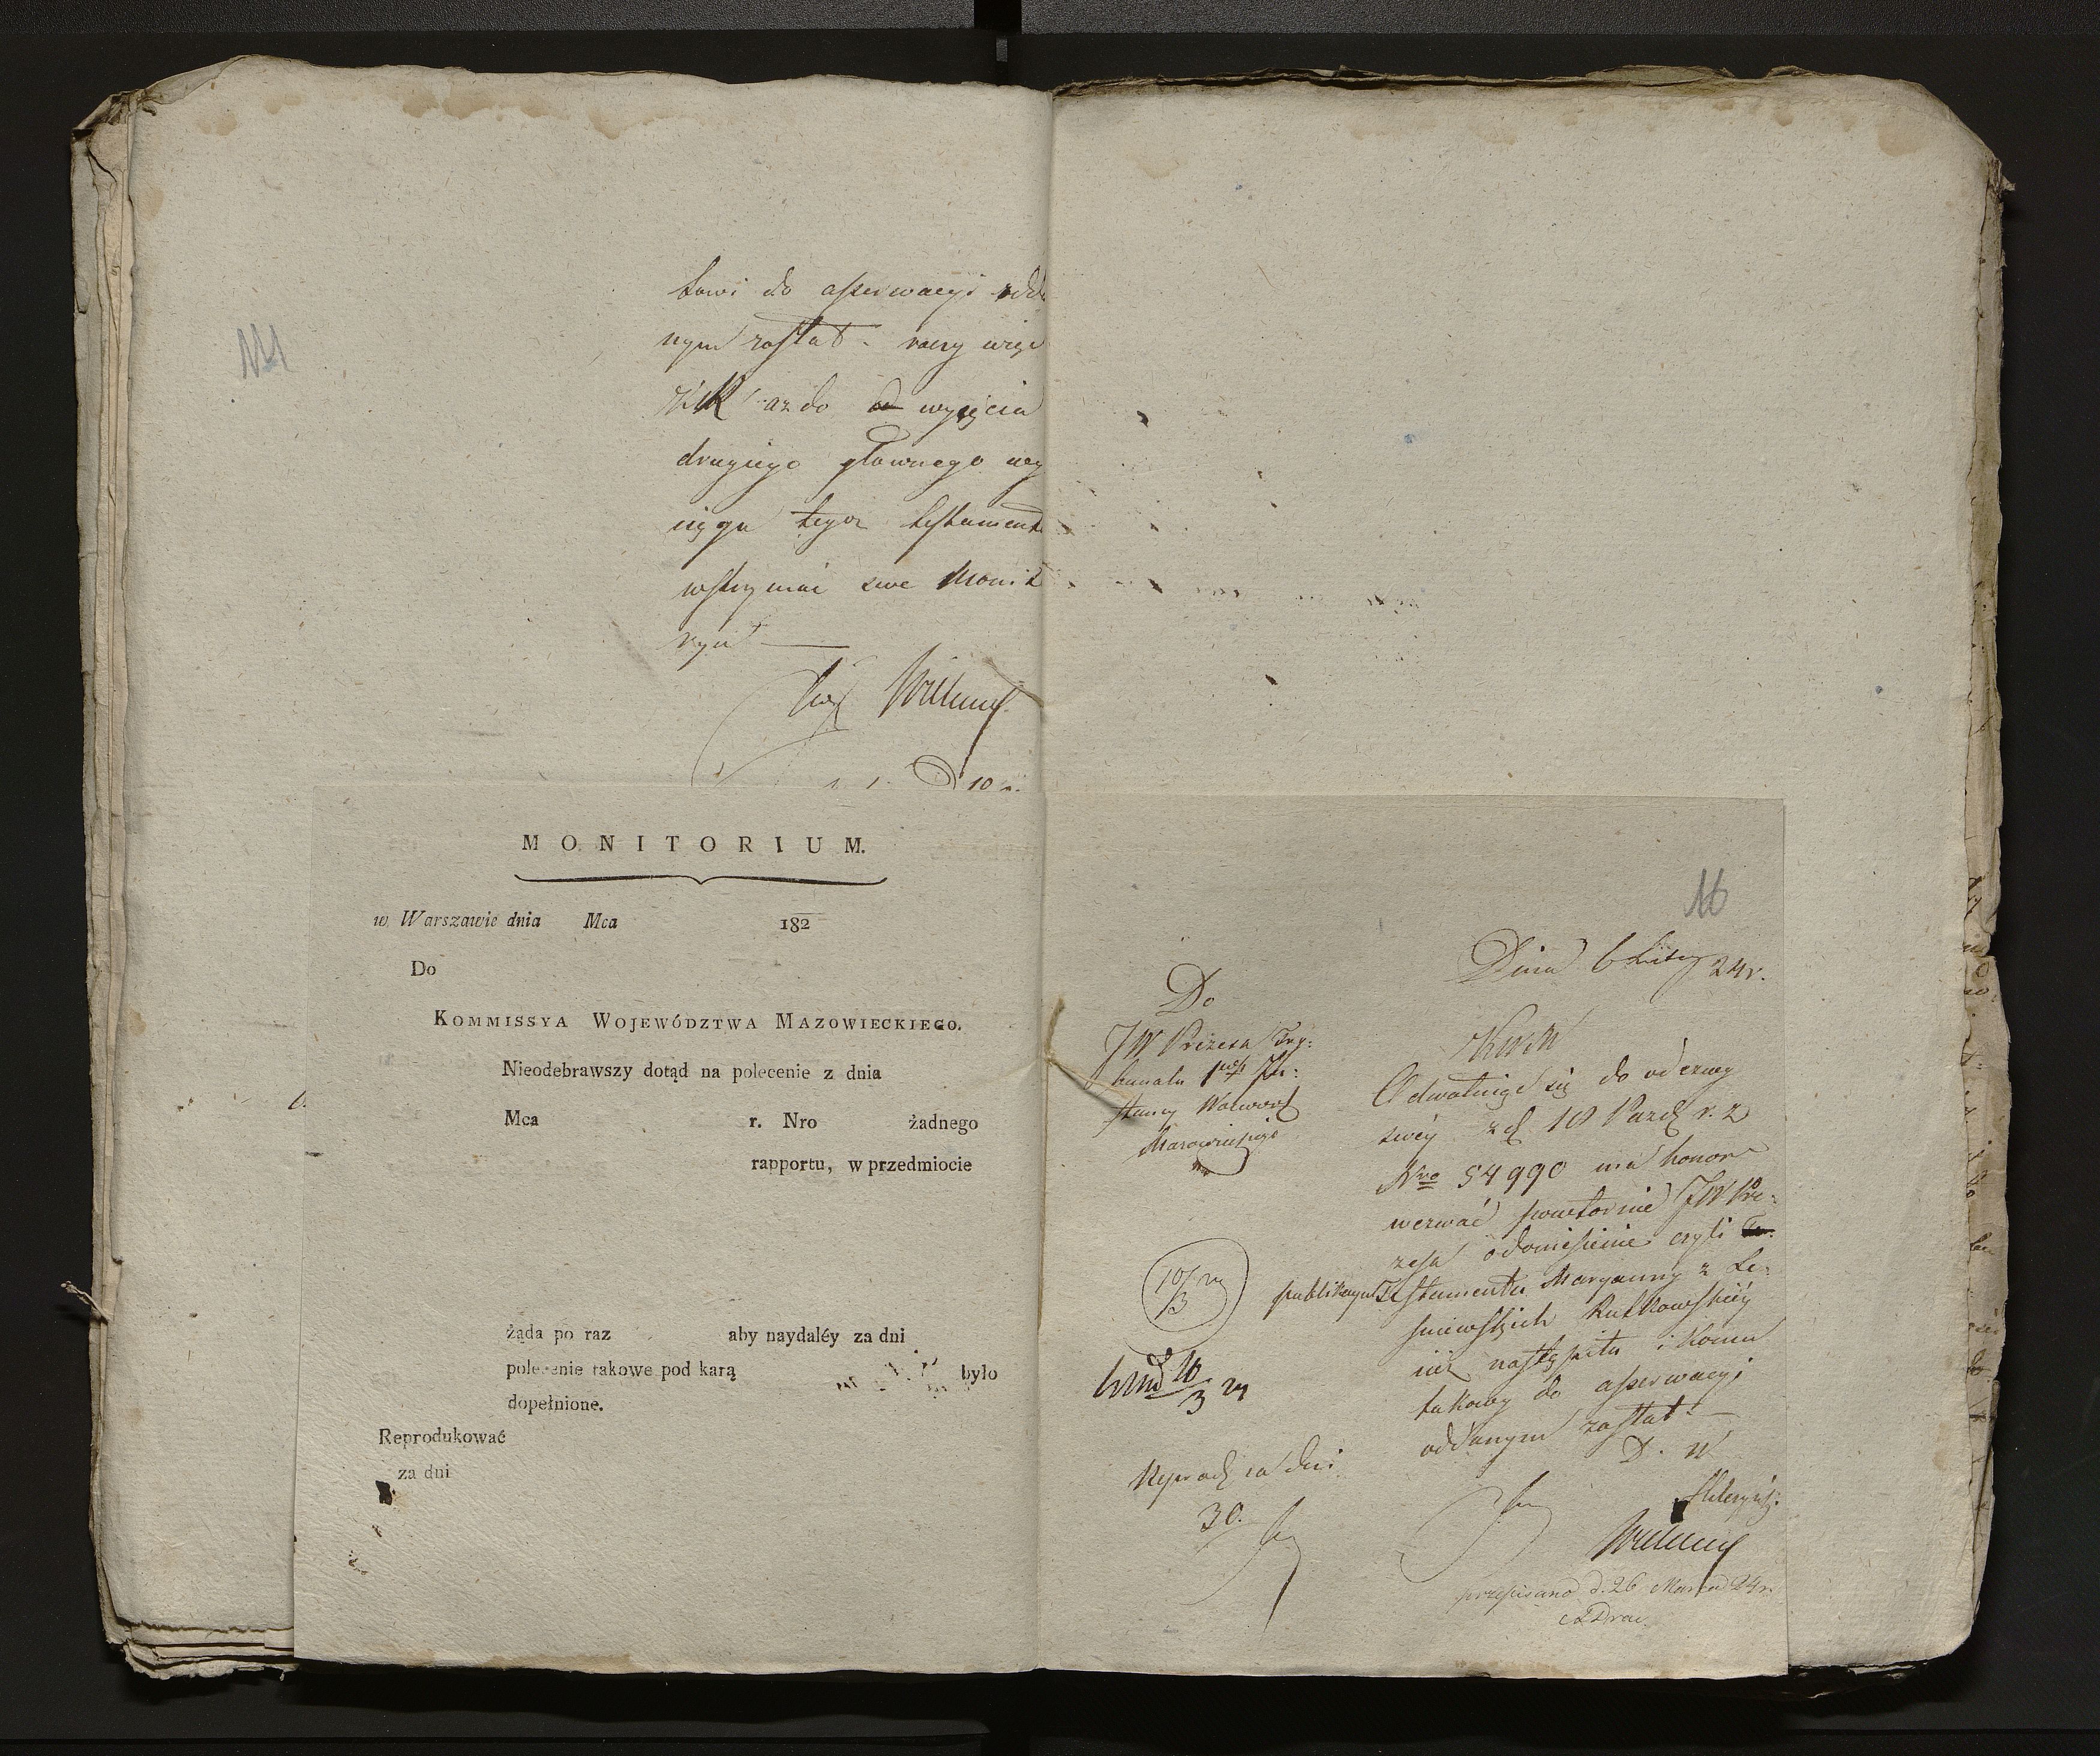 towi do asserwacyi odda
nym został. raczy więc
aż do wyjęcia
drugiego głownego wy
ciągu tegoż testamentu
wstrzymać swe Monit
rya
10
MONITORIUM.
w Warszawie dnia Mca 182
Do
KOMMISSYA WOJEWÓDZTWA MAZOWIECKIEGO.
Nieodebrawszy dotąd na polecenie z dnia
Mca r. Nro żadnego
rapportu, w przedmiocie
żąda po raz aby naydaléy za dni
polecenie takowe pod karą było
dopełnione.
Reprodukować
za dni
16
Dnia 6 Lutego 24 r.
Do
JW Prezesa Try:
bunału 1wszej In:
stancy Wojewodz
Mazowieckiego
KWM
Odwołuiąc się do odezwy
swéy z d 18 Paźdz r. z
Nro 54990 ma honor
wezwać powtornie JW Pre:
zesa o doniesienie czyli
publikacya Testamentu Maryanny z Le:
śniewskich Rutkowskiéy
iuż nastąpiła i komu
takowy do asserwacyi
oddanym został.
D. W
10/3 24
16/3 24
Reprod za dni
30.
przepisano d. 26 Marca 24 r.